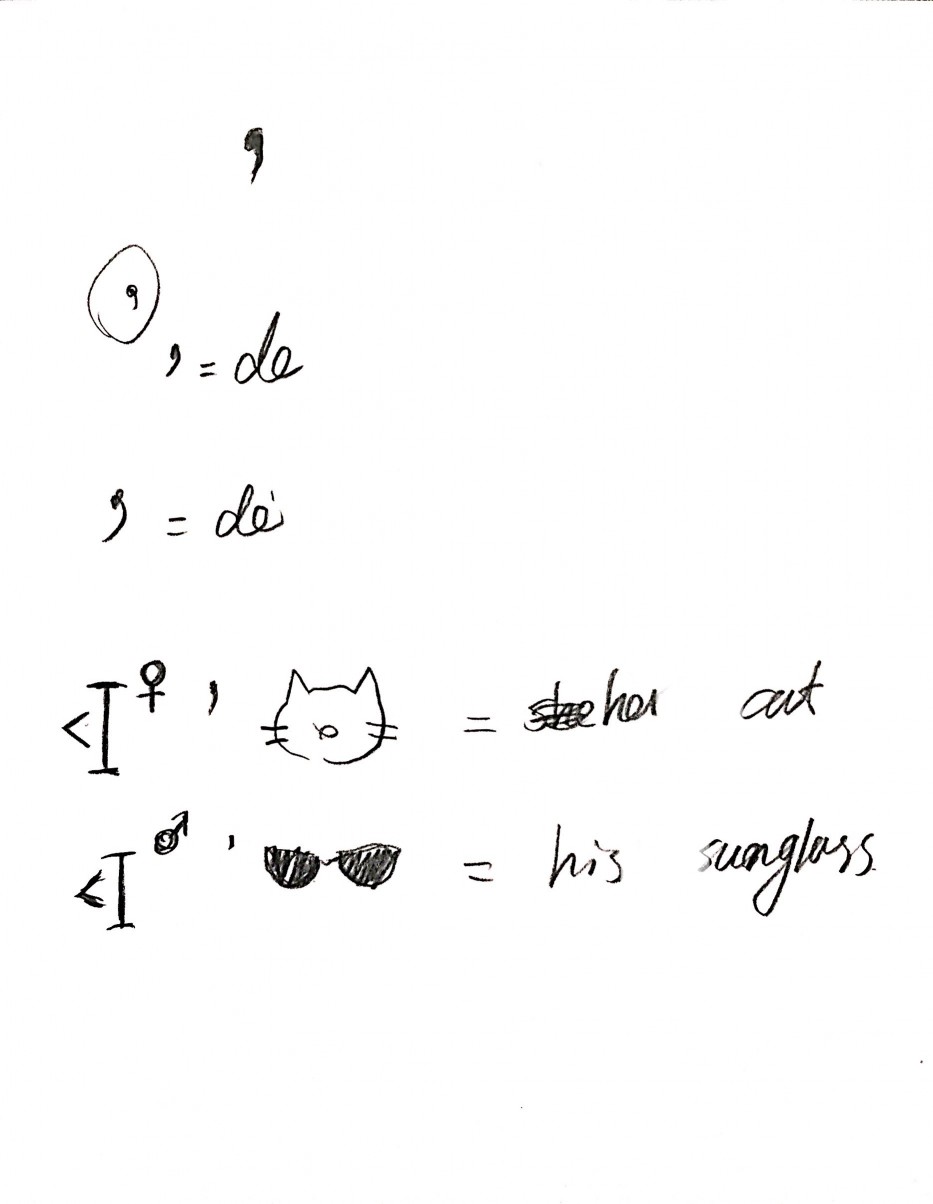 ,
, = de
, = dė
<I♀ , = her cat
<I♂ , = his sunglass